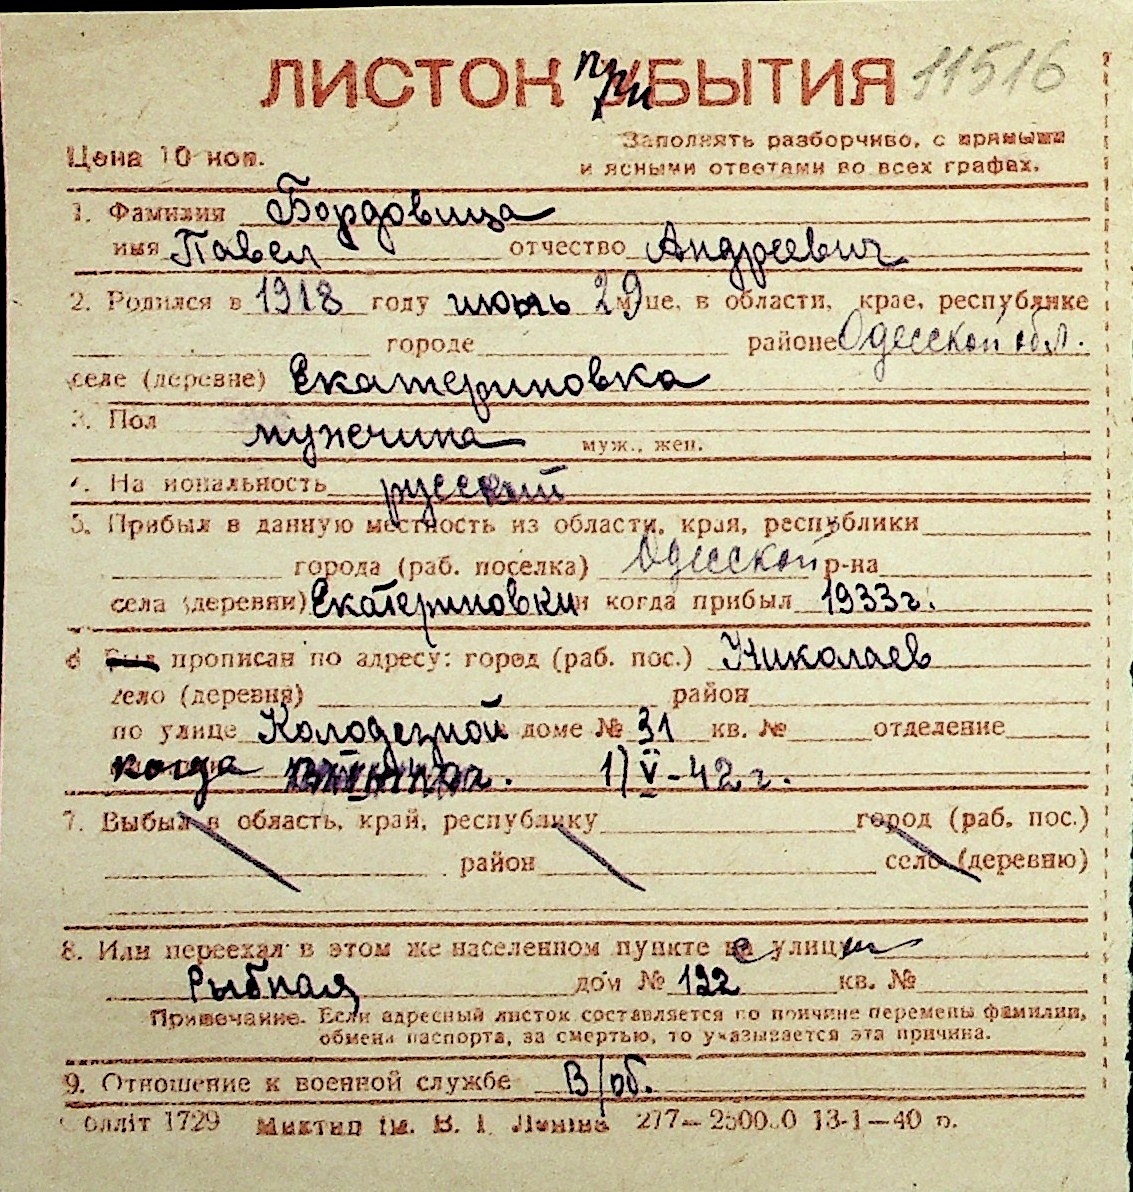 ЛИСТОК при БЫТИЯ 11516
Заполнять разборчиво, с прямыми
Цена 10 коп.
и ясными ответами во всех графах.
1. Фамилия Бордовица
имя Павел отчество Андреевич
2. Родился в 1918 году июнь 29 м-це, в области, крае, республике
городе районе Одесской обл.
селе (деревне) Екатериновка
3. Пол мужчина муж., жен.
4. На иональность русский
5. Прибыл в данную местность из области, края, республики
города (раб. поселка) Одесской р-на
села (деревни) Екатериновки и когда прибыл 1933 г.
6 Был прописан по адресу: город (раб. пос.) Николаев
село (деревня) район
по улице Колодезной доме № 31 кв. № отделение
когда 17 V - 42 г.
7. Выбыл в область, край, республику город (раб. пос.)
район село (деревню)
8. Или переехал в этом же населенном пункте с улицы
Рыбная дом № 122 кв. №
Примечание. Если адресный листок составляется по причине перемены фамилии,
обмена паспорта, за смертью, то указывается эта причина.
9. Отношение к военной службе в/об.
олліт 1729 Миктип ім. В. І. Леніна 277— 13-1—40 р.